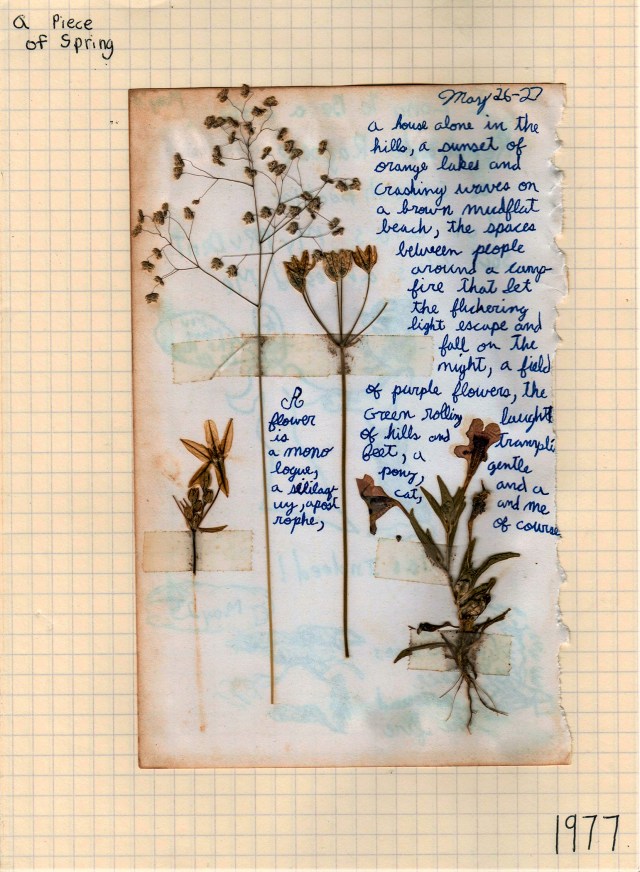 A Piece
of Spring
May 26-27
a house alone in the
hills, a sunset of
orange lakes and
crashing waves on
a brown mudflat
beach, the spaces
between people
around a camp-
fire that let
the flickering
light escape and
fall on the
night, a field
of purple flowers, the
Green rolling laught
of hills and trampli
feet, a gentle
pony, and a
cat, and me
of course
A
flower
is
a mono
logue,
a
uy, apost
rophe,
1977